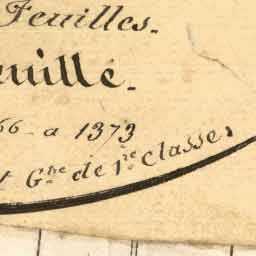 Feuilles.
euille.
66 a 1373
t G.bre de 1.re Classe,